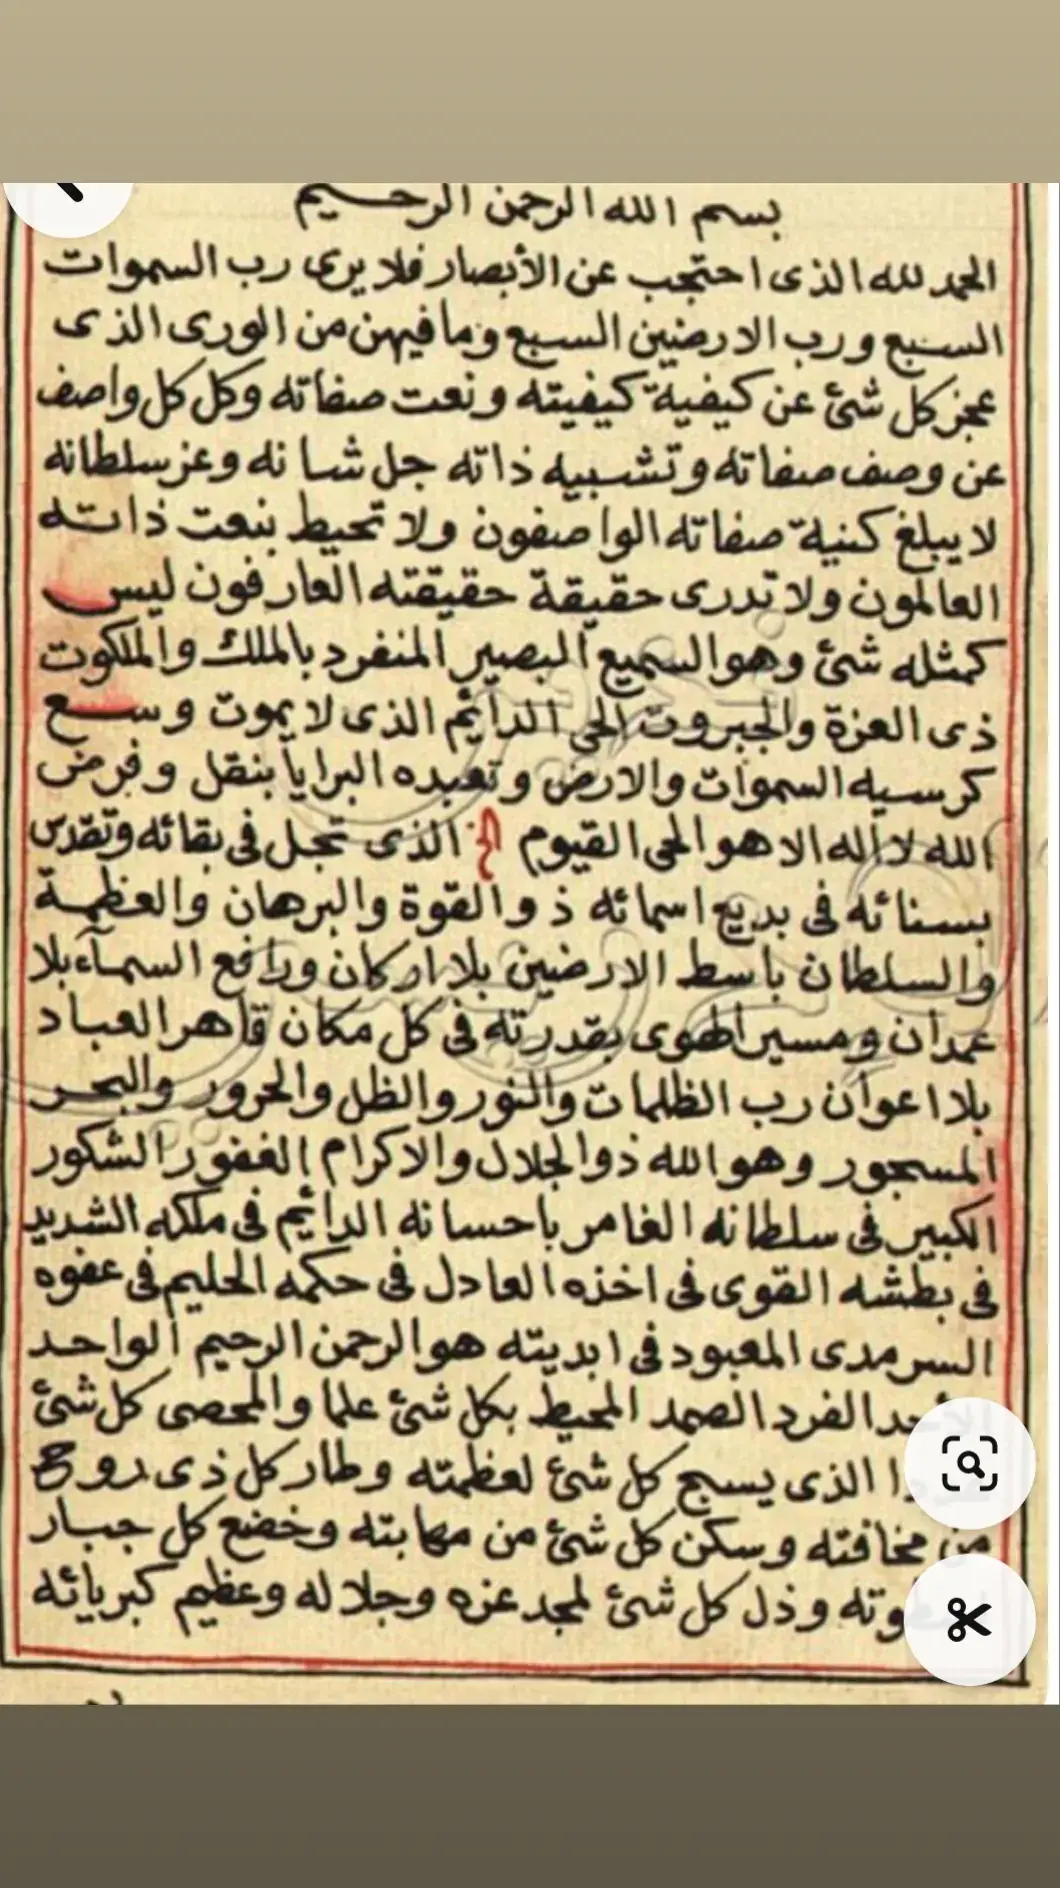 بسم الله الرحمن الرحيم
الحمد لله الذى احتجب عن الأبصار فلا يرى رب السموات
السبع ورب الارضين السبع وما فيهن من الورى الذى
عجز كل شئ عن كيفية كيفيته ونعت صفاته وكل كل واصف
عن وصف صفاته وتشبيه ذاته جل شانه وعز سلطانه
لا يبلغ كنية صفاته الواصفون ولا تحيط بنعت ذاته
العالمون ولا تدرى حقيقة حقيقته العارفون ليس
كمثله شئ وهو السميع البصير المنفرد بالملك والملكوت
ذى العزة والجبروت الحى الدائم الذى لا يموت وسع
كرسيه السموات والارض وتعبده البرايا بنقل وفرض
الله لا اله الا هو الحى القيوم الخ الذى تجل فى بقائه وتقدس
بسنائه فى بديع اسمائه ذو القوة والبرهان والعظمة
والسلطان باسط الارضين بلا اركان ورافع السمآء بلا
عمدان ومسير الهوى بقدرته فى كل مكان قاهر العباد
بلا اعوان رب الظلمات والنور والظل والحرور والبحر
المسجور وهو الله ذو الجلال والاكرام الغفور الشكور
الكبير فى سلطانه الغامر باحسانه الدائم فى ملكه الشديد
فى بطشه القوى فى اخذه العادل فى حكمه الحليم فى عفوه
السرمدى المعبود فى ابديته هو الرحمن الرحيم الواحد
الأحد الفرد الصمد المحيط بكل شئ علما والمحصى كل شئ
الذى يسبح كل شئ لعظمته وطار كل ذى روح
من مخافته وسكن كل شئ من مهابته وخضع كل جبار
وذل كل شئ لمجد عزه وجلاله وعظيم كبريائه